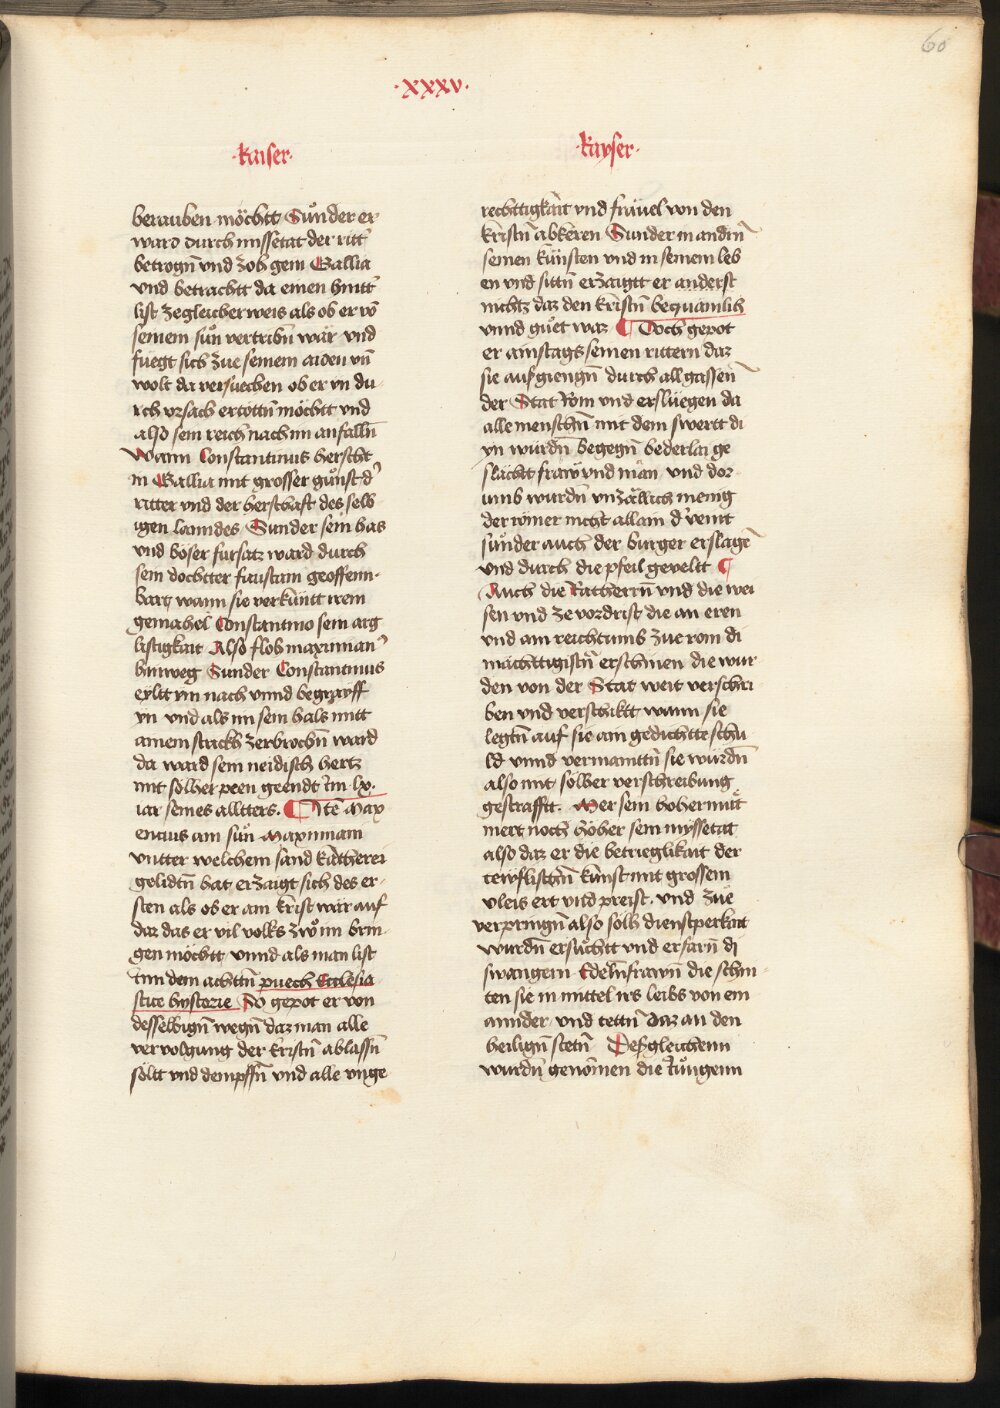 60
·xxxv·
·kaiser·
berauben möchtt Sunder er
ward durch missetat der ritt
betrogn̄ vnd zoh gem Gallia
vnd betrachtt da einen hmitt
list zegleicher weis als ob er võ
seinem sun vertribn̄ wär vnd
fuegt sich zue seinem aiden vn̄
wolt da versuechen ob er yn du
rch vrsach ertottn̄ möchtt vnd
also sein reich nach im anfalln̄
Wann Constantinus herscht
in Gallia mit grosser gunst d'
ritter vnd der herschaft des selb
igen lanndes Sunder sein has
vnd böser fursatz ward durch
sein dochtter faustam geoffenn
bart wann sie verkuntt irem
gemahel Constantino sein arg
listigkait Also floh maximian'
hinweg Sunder Constantinus
eyltt ym nach vnnd begrayff
yn vnd als im sein hals mitt
ainem strickh zerbrochn̄ ward
da ward sein neidisch hertz
mit solher peen geendt im lx.
iar seines alltters. ¶ Itē Max
encius ain sun Maximiani
vntter welchem sand katherei
gelidtn̄ hat erzaigt sich des er
sten als ob er ain krist wär auf
daz das er vil volks zwo im brin
gen möchtt vnnd als man list
Inn dem achttn̄ puech Ecclesia
stice hystorie So gepot er von
desselbign̄ wegn̄ daz man alle
vervolgung der kristn̄ ablassn̄
soltt vnd dempffn̄ vnd alle vnge
·kayser·
rechttigkait vnd fräuel von den
kristn̄ abkeren Sunder in andrn̄
seinen künsten vnd in seinem leb
en vnd sittn̄ erzaigtt er anderst
nichtz daz den kristn̄ bequamlih
vnnd guet waz ¶ Doch gepot
er ainstags seinen rittern daz
sie aufgiengn̄ durch all gassen
der Stat Rom vnd erslüegen da
alle menschn̄ mit dem swertt di
yn wurdn̄ begegn̄ bederlai ge
slächtt fraw vnd man vnd dor
umb wurdn̄ vnzällich menig
der römer nicht allain d' vemt
sunder auch der burger erslagē
vnd durch die pfeil geveltt ¶
Auch die Ratherrn̄ vnd die wei
sen vnd zevordrist die an eren
vnd am reichtumb zue rom di
mächttigistn̄ erschinen die wur
den von der Stat weit verschri
ben vnd verschiktt wann sie
legtn̄ auf sie ain gedichtte schu
ld vnnd vermainttn̄ sie würdn̄
also mit solher verschreibung
gestrafftt. Mer sein hohermutt
mert noch höher sein myssetat
also daz er die betrieglikait der
tewflischn̄ kunst mit grossem
vleis ert vnd preist. vnd zue
verpringn̄ also solh dienstperkait
wurdn̄ ersuchtt vnd erfarn̄ di
swangern Edeln̄ frawn̄ die schni
ten sie in mittel irs leibs von ein
annder vnd tettn̄ daz an den
heilign̄ stetn̄ Desgleichenn
wurdn̄ genomen die Jungenn